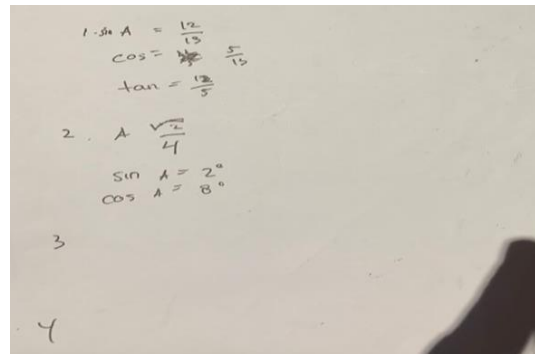 1. sin A = 12/13
cos = 5/13
tan = 12/5
2. A √2/4
sin A = 2°
cos A = 8°
3
4